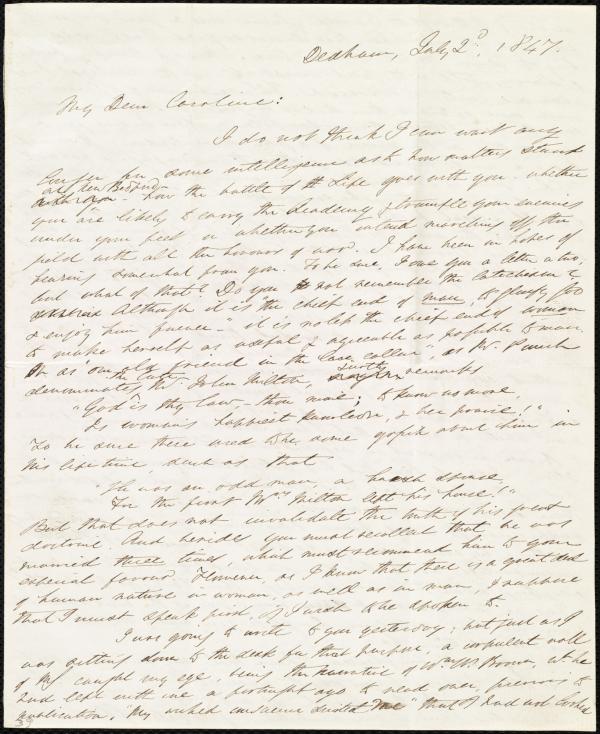 Dedham, July 2d, 1847.
My Dear Caroline:
I do not think I can wait any
longer for some intelligence as to how matters stand
at New Bedford - how the battle of the Life goes with you - whether
you are likely to carry the Academy & trample your enemies
under your feet or whether you intend marching off the
field with all the honours of war. I have been in hopes of
hearing somewhat from you. To be sure, I owe you a letter or two,
but what of that? Do you not remember the Catechism &
Although it is the chief end of man, to glorify God
& enjoy him forever - it is no less the chief end of woman
to make herself as useful & agreeable as possible to man.
Or as our friend in the cellar, as Mr. Punch
denominates Mr. John Milton, justly remarks
"God is thy law, thou mine; to know no more,
Is woman's happiest knowledge, & her praise!"
To be sure there used to be some gossip about him in
his lifetime, such as that
"He was an odd man, a harsh spouse,
For the first Mrs Milton left his house!"
But that does not invalidate the truth of his great
doctrine. And besides you must recollect that he was
married three times, which must recommend him to your
especial favour. However, as I know that there is a great deal
of human nature in woman, as well as in man, I suppose
that I must speak first, if I wish to be spoken to.
I was going to write to you yesterday; but just as I
was sitting down to the desk for that purpose, a corpulent roll
of MS caught my eye, being the Narrative of Wm W. Brown, wh. he
had left with me a fortnight ago to read over, previous to
publication. "My wicked conscience twisted me" that I had not looked
39